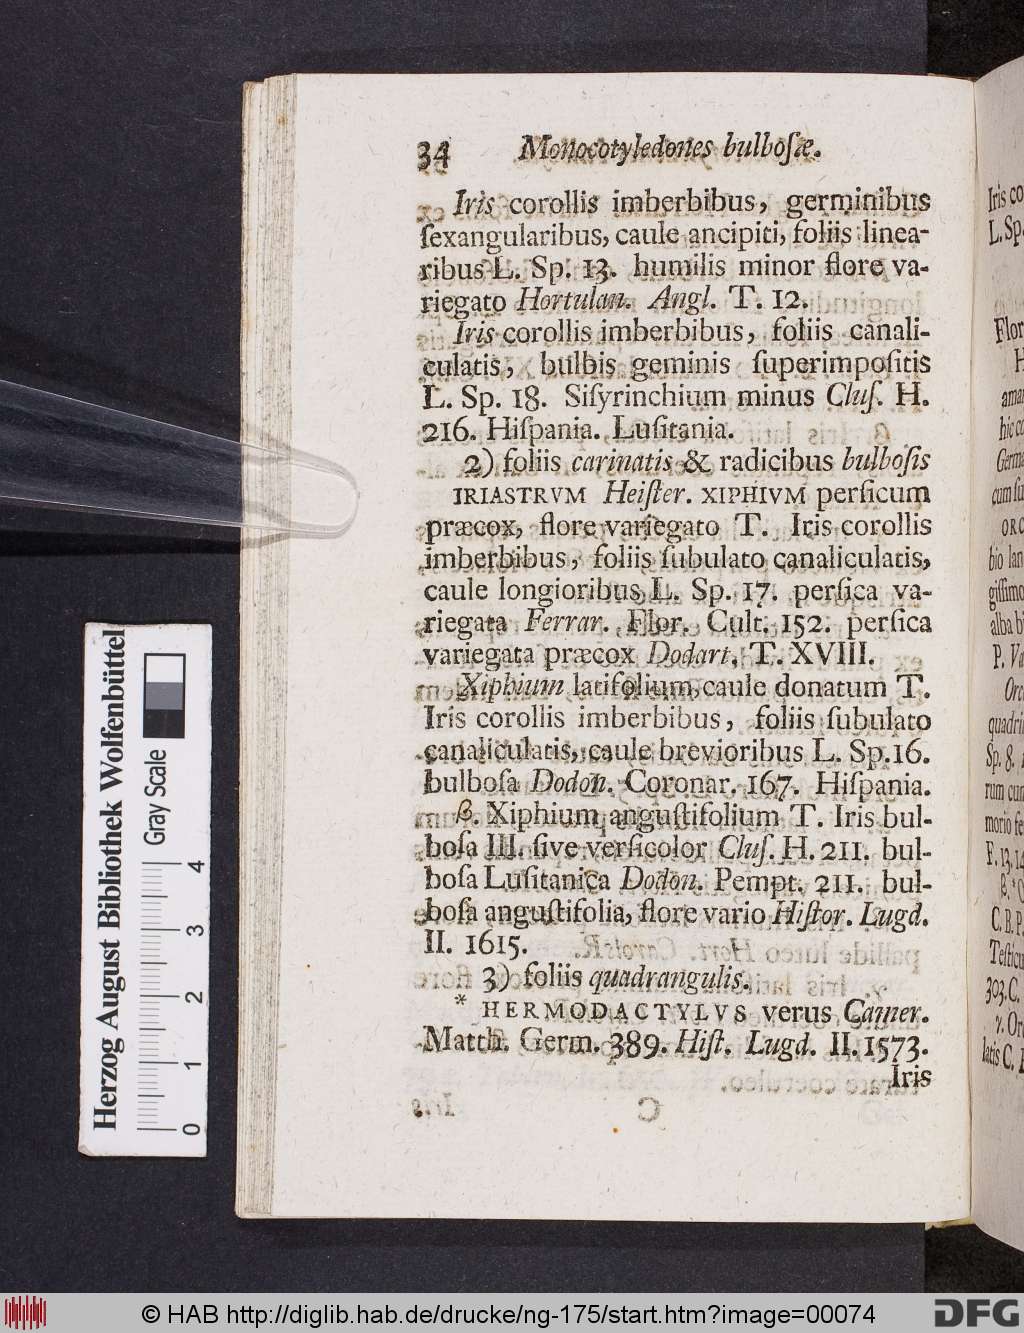 34 Monocotyledones bulboſæ.
Iris corollis imberbibus, germinibus
ſexangularibus, caule ancipiti, foliis linea-
ribus L. Sp. 13. humilis minor flore va-
riegato Hortulan. Angl. T. 12.
Iris corollis imberbibus, foliis canali-
culatis, bulbis geminis ſuperimpoſitis
L. Sp. 18. Siſyrinchium minus Cluſ. H.
216. Hiſpania. Luſitania.
2) foliis carinatis & radicibus bulboſis
IRIASTRVM Heiſter. XIPHIVM perſicum
præcox, flore variegato T. Iris corollis
imberbibus, foliis ſubulato canaliculatis,
caule longioribus L. Sp. 17. perſica va-
riegata Ferrar. Flor. Cult. 152. perſica
variegata præcox Dodart. T. XVIII.
Xiphium latifolium, caule donatum T.
Iris corollis imberbibus, foliis ſubulato
canaliculatis, caule brevioribus L. Sp. 16.
bulboſa Dodon. Coronar. 167. Hiſpania.
β. Xiphium anguſtifolium T. Iris bul-
boſa III. ſive verſicolor Cluſ. H. 211. bul-
boſa Luſitanica Dodon. Pempt. 211. bul-
boſa anguſtifolia, flore vario Hiſtor. Lugd.
II. 1615.
3) foliis quadrangulis.
* HERMODACTYLVS verus Camer.
Matth. Germ. 389. Hiſt. Lugd. II. 1573.
Iris
Iris co
L. Sp.
Flor
H
aman
hic co
Germa
cum ſu
ORC
bio lan
giſſimo
alba b
P. Va
Orc
quadri
Sp. 8.
rum cum
morio fe
F. 13. 14
C. B. P.
Teſticu
303. C.
γ. Or
latis C.
Herzog August Bibliothek Wolfenbüttel
Gray Scale
0 1 2 3 4
© HAB http://diglib.hab.de/drucke/ng-175/start.htm?image=00074
DFG